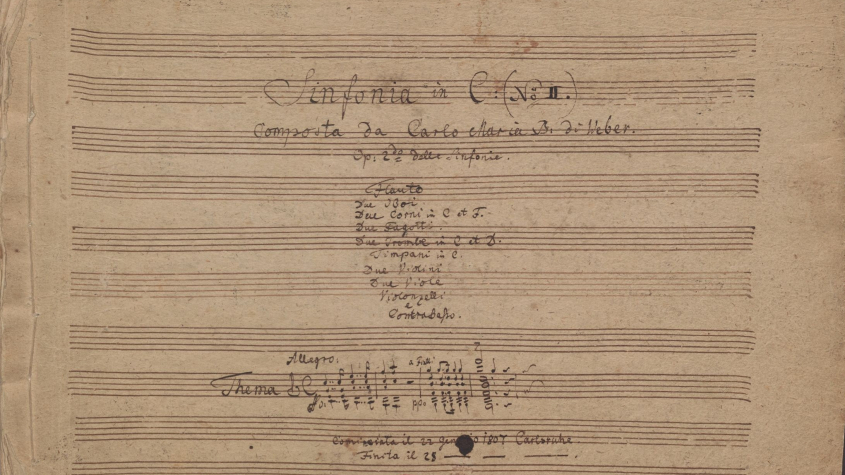 Sinfonia in C. (No. II.)
Composta da Carlo Maria B. di Weber.
Op. 2da delle Sinfonie.
Flauto
Due Oboi.
Due Corni in C et F.
Due Fagotti.
Due Trombe in C et D.
Timpani in C.
Due Violini
Due Viole
Violoncelli
e
Contrabasso.
Allegro. a Tutti
Thema
Cominciata il 22 gennaio 1807 Carlsruhe
Finita il 28